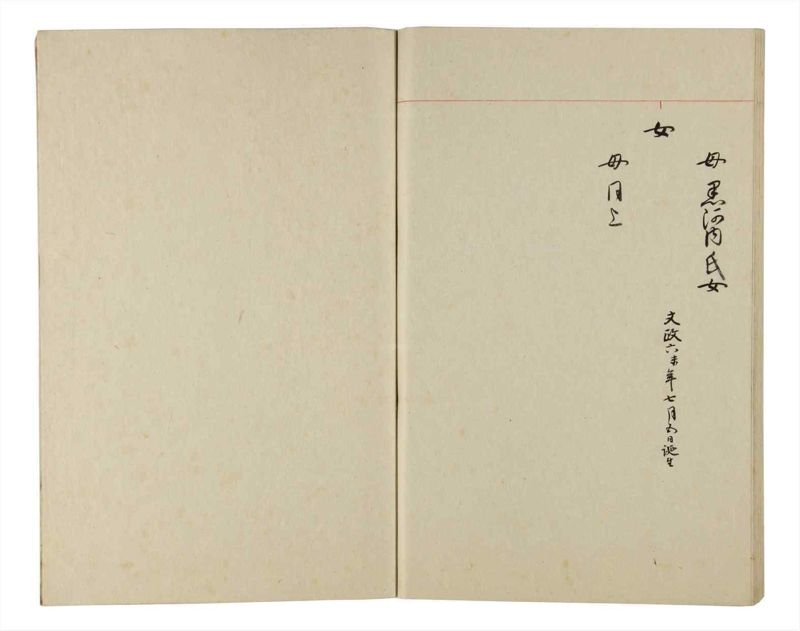 母黒河内氏女
女
文政六未年七月五日誕生
母同上